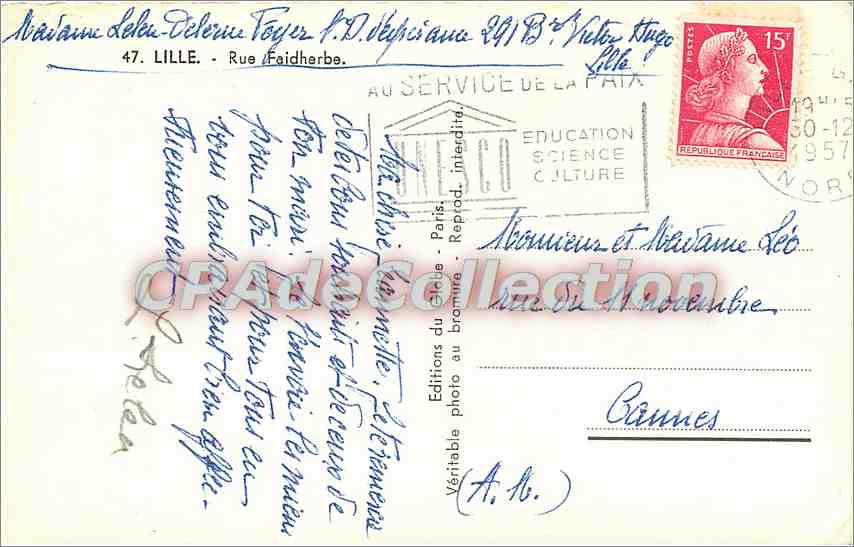 Madame Leleu-Delerue Foyer 291 Bd Victor Hugo
Lille
47. LILLE. - Rue Faidherbe.
AU SERVICE DE LA PAIX
UNESCO
EDUCATION
SCIENCE
CULTURE
POSTES
15F
REPUBLIQUE FRANÇAISE
30-12
1957
NOR
Ma chère Je te remercie
de tes bons souhaits et de ceux de
ton mari. Je t'envoie les miens
pour toi et pour tous en
vous embrassant bien affec-
tueusement
Leleu
Editions du Globe - Paris.
Véritable photo au bromure - Reprod. interdite.
Monsieur et Madame Léo
rue du 11 novembre
Cannes
(A.M.)
CPAdeCollection